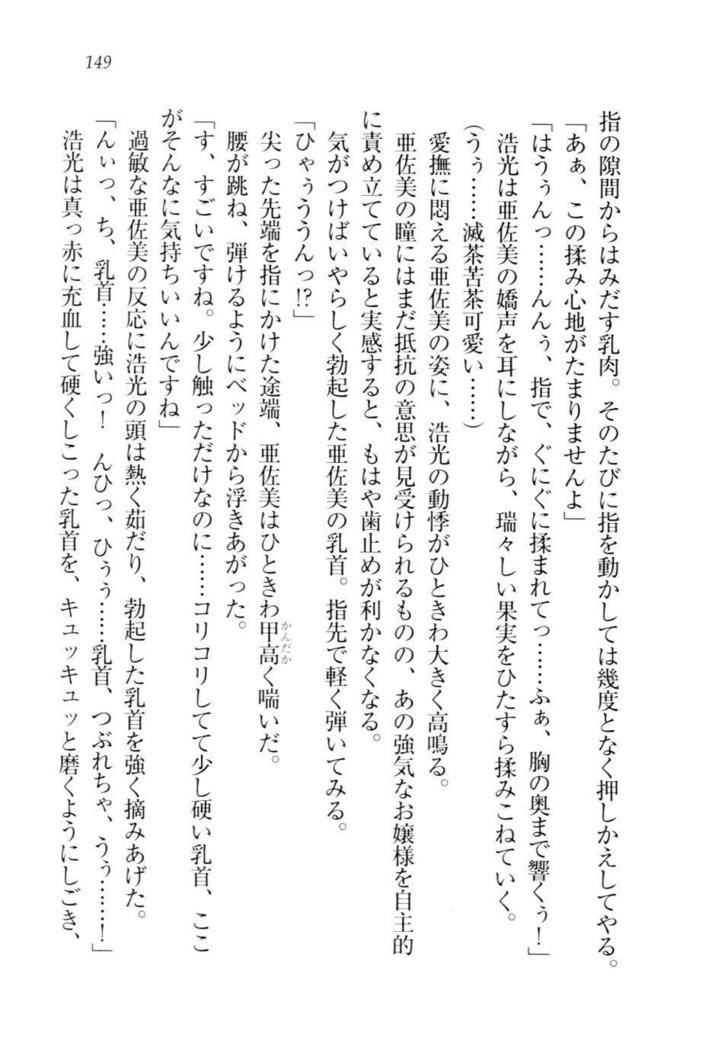 149
指の隙間からはみだす乳肉。そのたびに指を動かしては幾度となく押しかえしてやる。
「あぁ、この揉み心地がたまりませんよ」
「はうぅんっ……んんぅ、指で、ぐにぐに揉まれてっ……ふぁ、胸の奥まで響くぅ！」
浩光は亜佐美の嬌声を耳にしながら、瑞々しい果実をひたすら揉みこねていく。
（うぅ……滅茶苦茶可愛い……）
愛撫に悶える亜佐美の姿に、浩光の動悸がひときわ大きく高鳴る。
亜佐美の瞳にはまだ抵抗の意思が見受けられるものの、あの強気なお嬢様を自主的
に責め立てていると実感すると、もはや歯止めが利かなくなる。
気がつけばいやらしく勃起した亜佐美の乳首。指先で軽く弾いてみる。
「ひゃぅううんっ!?」
尖った先端を指にかけた途端、亜佐美はひときわ甲高く喘いだ。
かんだか
腰が跳ね、弾けるようにベッドから浮きあがった。
「す、すごいですね。少し触っただけなのに……コリコリしてて少し硬い乳首、ここ
がそんなに気持ちいいんですね」
過敏な亜佐美の反応に浩光の頭は熱く茹だり、勃起した乳首を強く摘みあげた。
「んぃっ、ち、乳首……強いっ！　んひっ、ひぅぅ……乳首、つぶれちゃ、うぅ……！」
浩光は真っ赤に充血して硬くしこった乳首を、キュッキュッと磨くようにしごき、